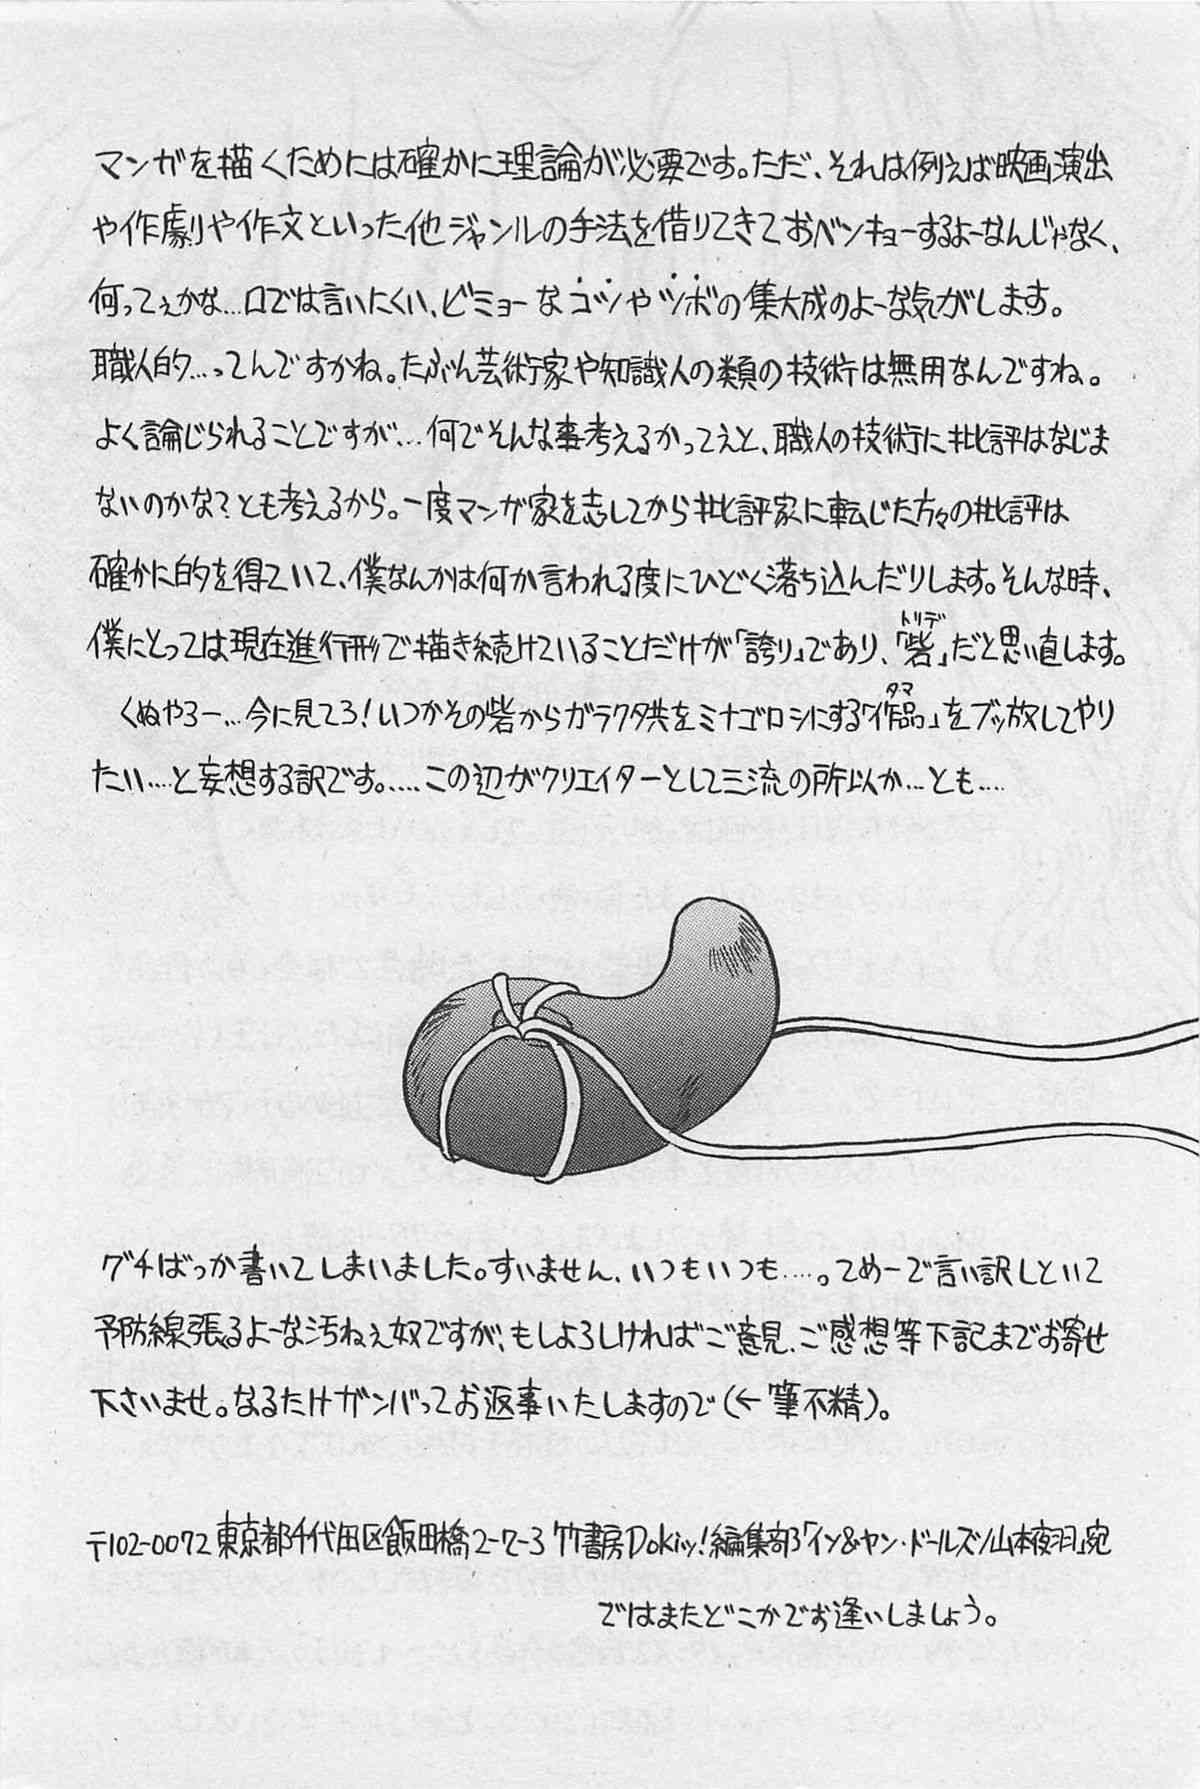 マンガを描くためには確かに理論が必要です。ただ、それは例えば映画演出
や作劇や作文といった他ジャンルの手法を借りてきておベンキョーするよーなんじゃなく、
何ってぇかな…口では言いにくい、ビミョーなコツやツボの集大成のよーな気がします。
職人的…ってんですかね。たぶん芸術家や知識人の類の技術は無用なんですね。
よく論じられることですが…何でそんな事考えるかってえと、職人の技術に批評はなじま
ないのかな?とも考えるから。一度マンガ家を志してから批評家に転じた方々の批評は
確かに的を得ていて、僕なんかは何か言われる度にひどく落ち込んだりします。そんな時、
僕にとっては現在進行形で描き続けていることだけが「誇り」であり、「砦」だと思い直します。
トリデ
くぬやろー…今に見てろ!いつかその砦からガラクタ共をミナゴロシにする「作品」をブッ放してやり
タマ
たい…と妄想する訳です。…この辺がクリエイターとして三流の所以か…とも…
グチばっか書いてしまいました。すいません、いつもいつも…。てめーで言い訳しといて
予防線張るよーな汚ねぇ奴ですが、もしよろしければご意見、ご感想等下記までお寄せ
下さいませ。なるたけガンバってお返事いたしますので(←筆不精)。
〒102-0072 東京都千代田区飯田橋2-7-3 竹書房Dokiッ!編集部「イン&ヤン・ドールズ/山本夜羽」宛
ではまたどこかでお逢いしましょう。